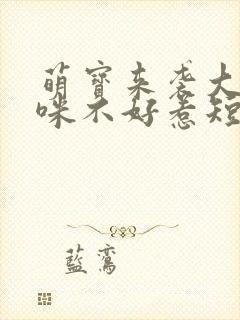 萌寶來袭大
咪不好惹短
藍鸞